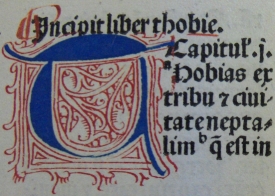 Incipit liber thobie.
Capitulꝭ. j.
Thobias ex
tribu ⁊ ciui
tate nepta-
lim b q̃ est in